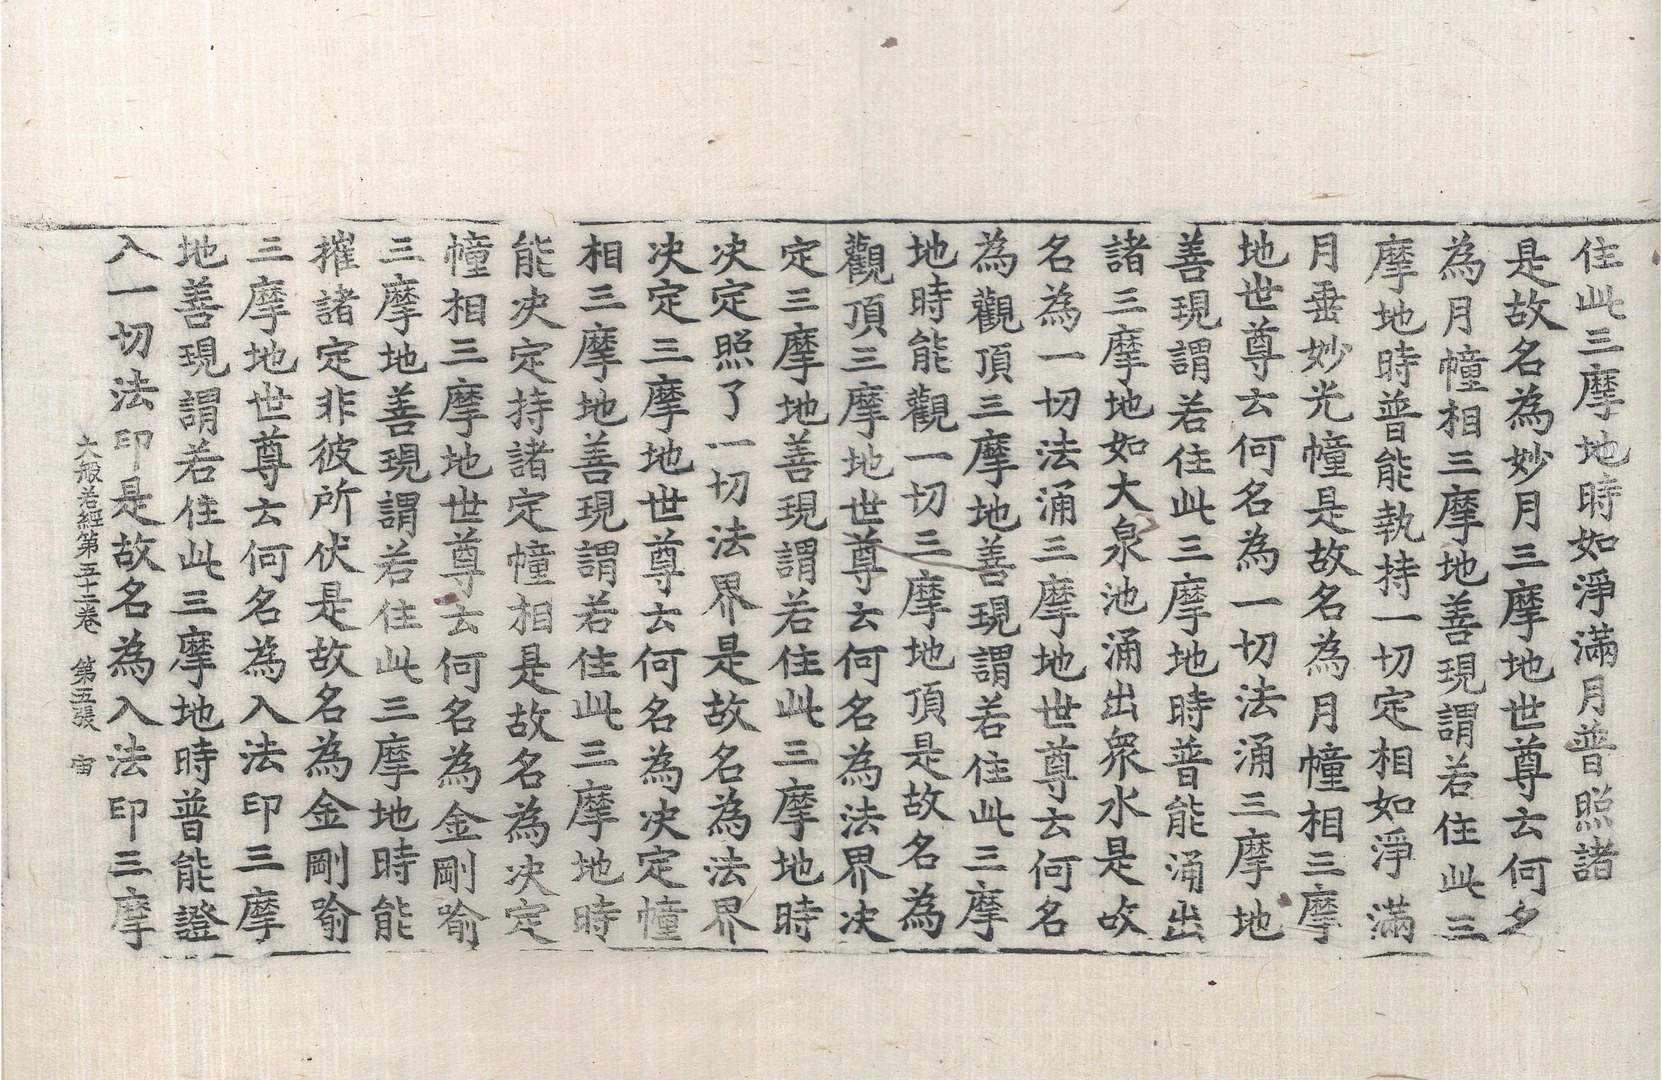 住此三摩地時如淨滿月普照諸
是故名為妙月三摩地世尊云何名
為月幢相三摩地善現謂若住此三
摩地時普能執持一切定相如淨滿
月垂妙光幢是故名為月幢相三摩
地世尊云何名為一切法涌三摩地
善現謂若住此三摩地時普能涌出
諸三摩地如大泉池涌出衆水是故
名為一切法涌三摩地世尊云何名
為觀頂三摩地善現謂若住此三摩
地時能觀一切三摩地頂是故名為
觀頂三摩地世尊云何名為法界决
定三摩地善現謂若住此三摩地時
决定照了一切法界是故名為法界
决定三摩地世尊云何名為决定幢
相三摩地善現謂若住此三摩地時
能决定持諸定幢相是故名為决定
幢相三摩地世尊云何名為金剛喻
三摩地善現謂若住此三摩地時能
摧諸定非彼所伏是故名為金剛喻
三摩地世尊云何名為入法印三摩
地善現謂若住此三摩地時普能證
入一切法印是故名為入法印三摩
大般若經第五十二卷 第五張 宙